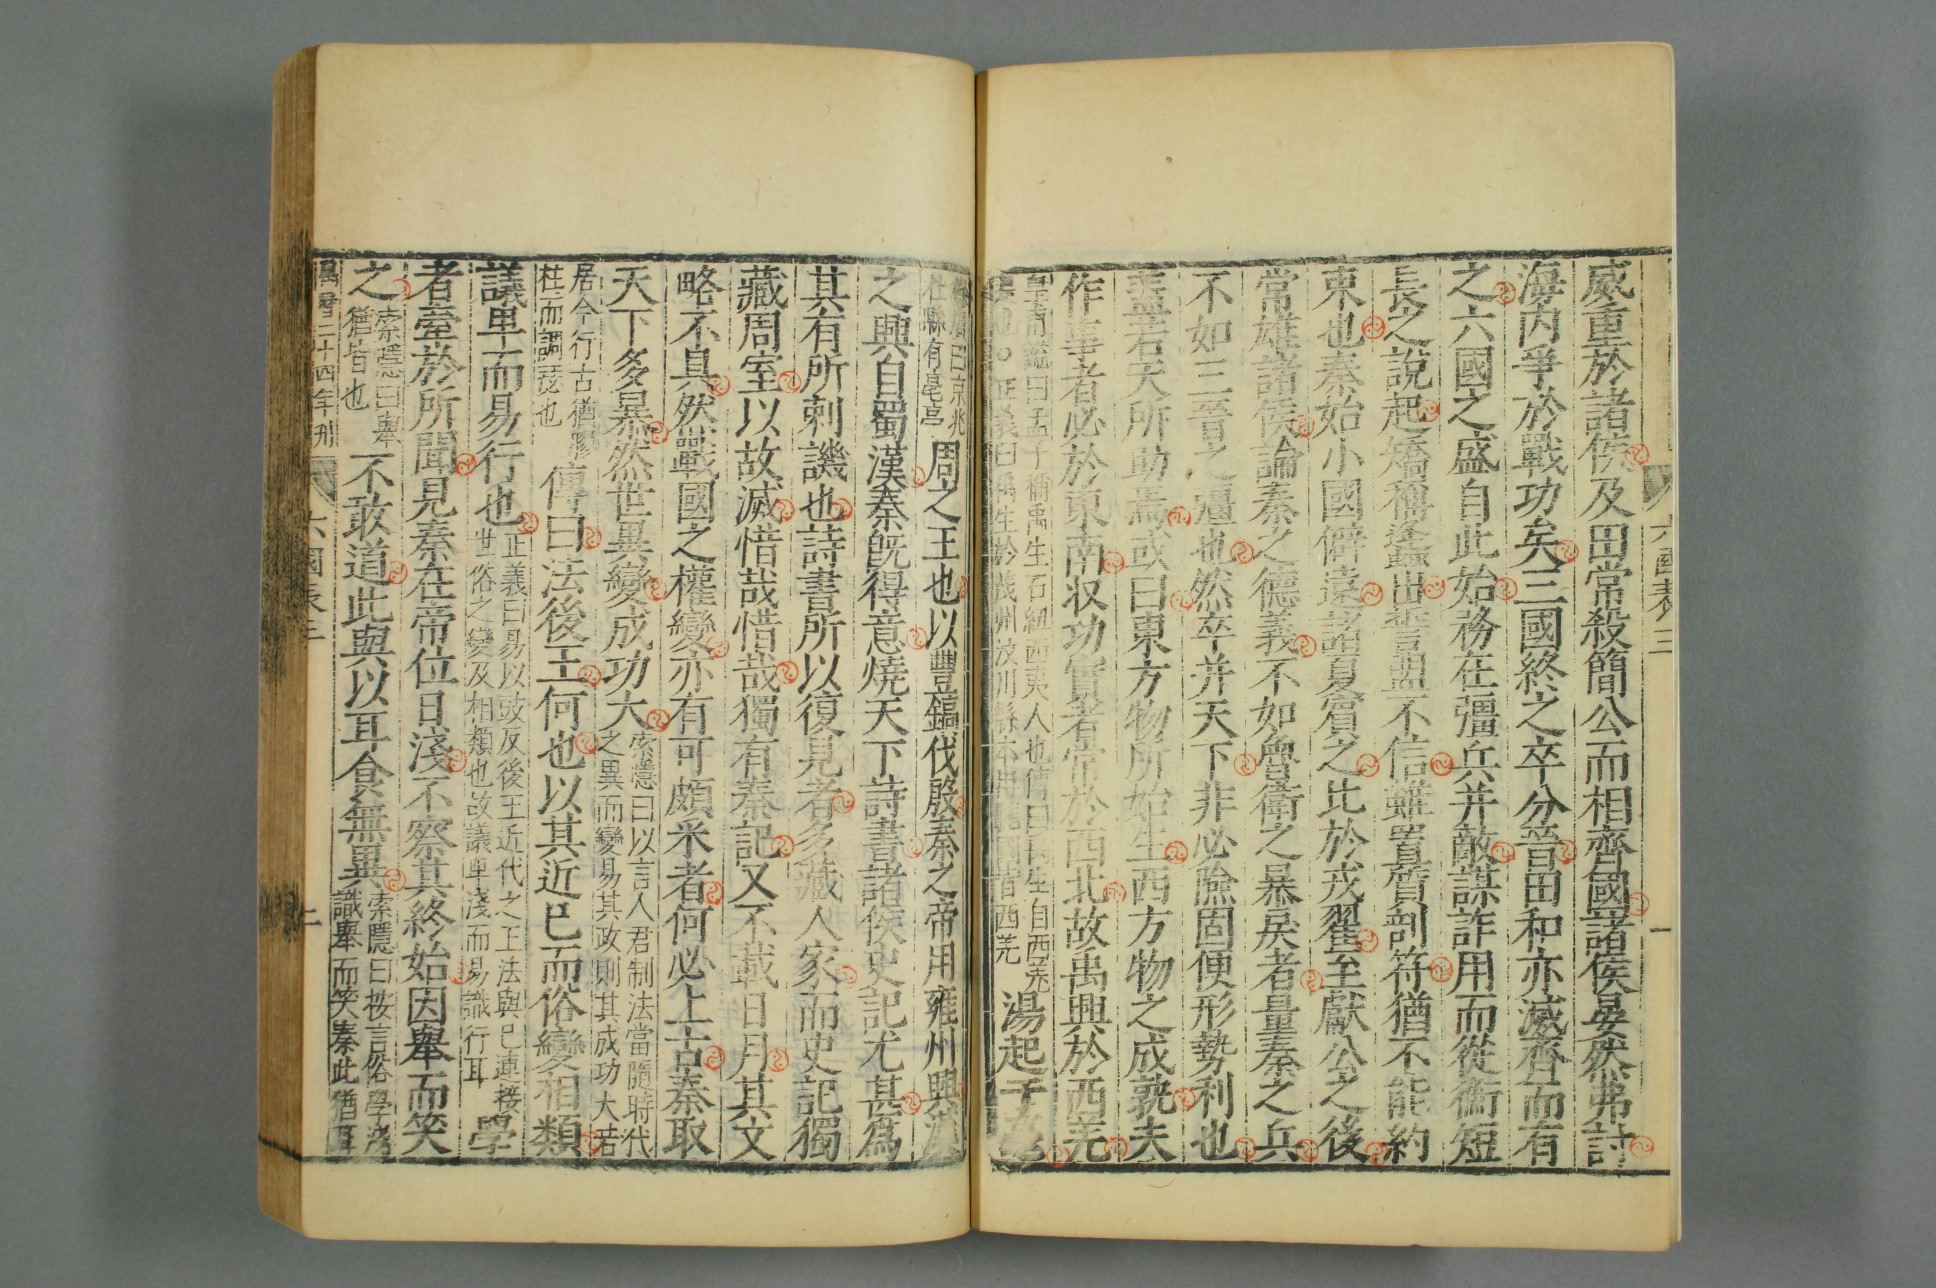 威重於諸侯及田常殺簡公而相齊國諸侯晏然弗討
海内爭於戰功矣三國終之卒分晉田和亦滅齊而有
之六國之盛自此始務在彊兵并敵謀詐用而從衡短
長之說起矯稱蠭出誓盟不信雖置質剖符猶不能約
束也秦始小國僻遠諸夏賓之比於戎翟至獻公之後
常雄諸侯論秦之德義不如魯衛之暴戾者量秦之兵
不如三晉之彊也然卒并天下非必險固便形勢利也
蓋若天所助焉或曰東方物所始生西方物之成孰夫
作事者必於東南收功實者常於西北故禹興於西羌
皇甫謐曰孟子稱禹生石紐西夷人也傳曰禹生自西羌
是也○正義曰禹生於茂州汶川縣本冉駹國皆西羌
湯起于亳
徐廣曰京兆
杜縣有亳亭
周之王也以豐鎬伐殷秦之帝用雍州興漢
之興自蜀漢秦旣得意燒天下詩書諸侯史記尤甚爲
其有所刺譏也詩書所以復見者多藏人家而史記獨
藏周室以故滅惜哉惜哉獨有秦記又不載日月其文
略不具然戰國之權變亦有可頗采者何必上古秦取
天下多暴然世異變成功大
索隱曰以言人君制法當隨時代
之異而變易其政則其成功大若
居今行古猶膠
柱而調瑟也
傳曰法後王何也以其近已而俗變相類
議卑而易行也
正義曰易以豉反後王近代之王法與已連接
世俗之變及相類也故議卑淺而易識行耳
學
者牽於所聞見秦在帝位日淺不察其終始因舉而笑
之
索隱曰舉
猶皆也
不敢道此與以耳食無異
索隱曰按言俗學淺
識舉而笑秦此猶耳
萬曆二十四年刊
六國表三
二
六國表三
一